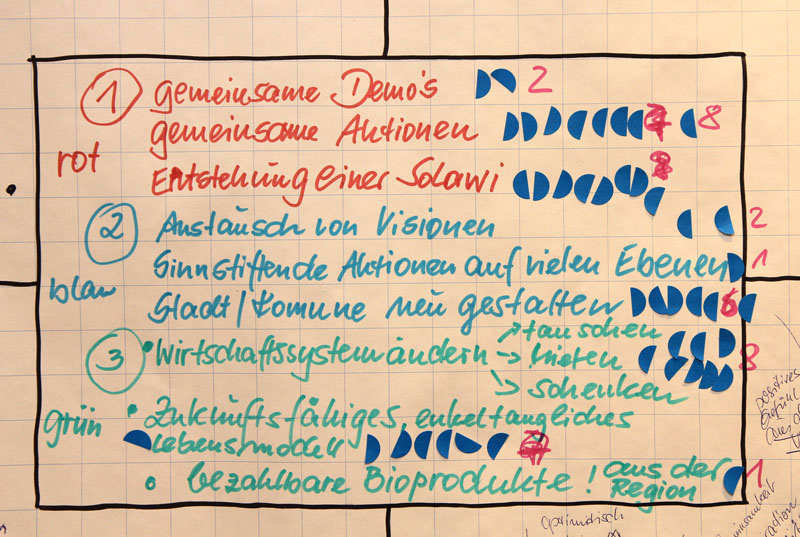 1 gemeinsame Demo's 2
gemeinsame Aktionen 8
rot
Entstehung einer Solawi
2 Austausch von Visionen 2
Sinnstiftende Aktionen auf vielen Ebenen 1
blau
Stadt/Komune neu gestalten 6
→ tauschen
3 • Wirtschaftssystem ändern → mieten 8
→ schenken
grün • Zukunftsfähiges, enkeltaugliches
Lebensmodell
• bezahlbare Bioprodukte ! aus der 1
Region
positives
Gefühl
optimistisch